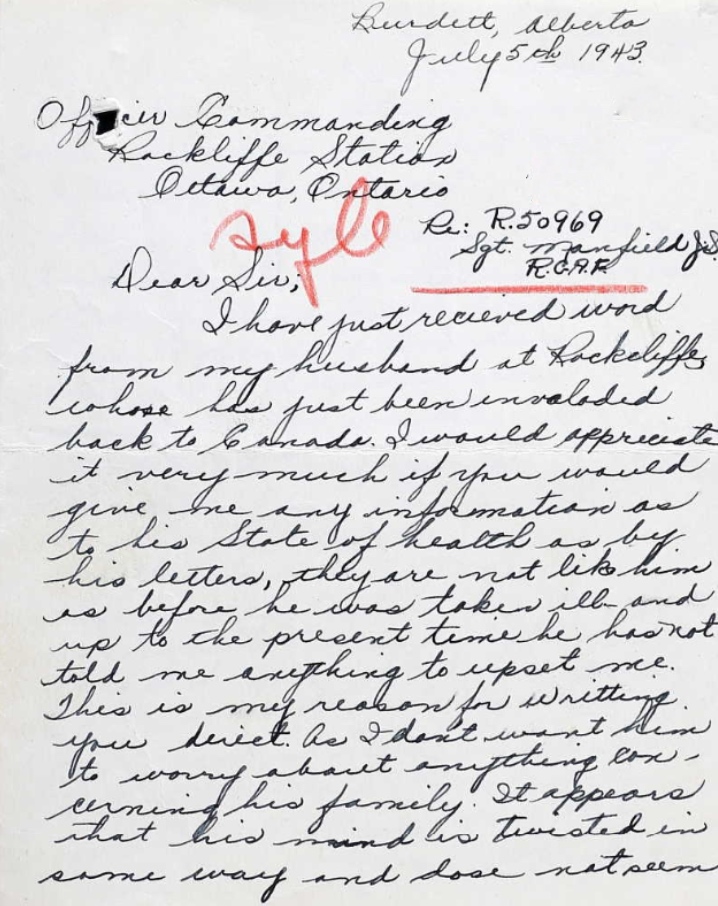 Burdett, Alberta
July 5th 1943.
Officer Commanding
Rockliffe Station
Ottawa, Ontario
Re: R.50969
Sgt. Manfield J.S.
R.C.A.F.
Dear Sir;
I have just recieved word
from my husband at Rockcliffe,
whose has just been invaloded
back to Canada. I would appreciate
it very much if you would
give me any information as
to his State of health as by
his letters, they are not like him
as before he was taken ill and
up to the present time he has not
told me anything to upset me.
This is my reason for writting
you direct. As I dont want him
to worry about anything con-
cerning his family. It appears
that his mind is twisted in
some way and dose not seem